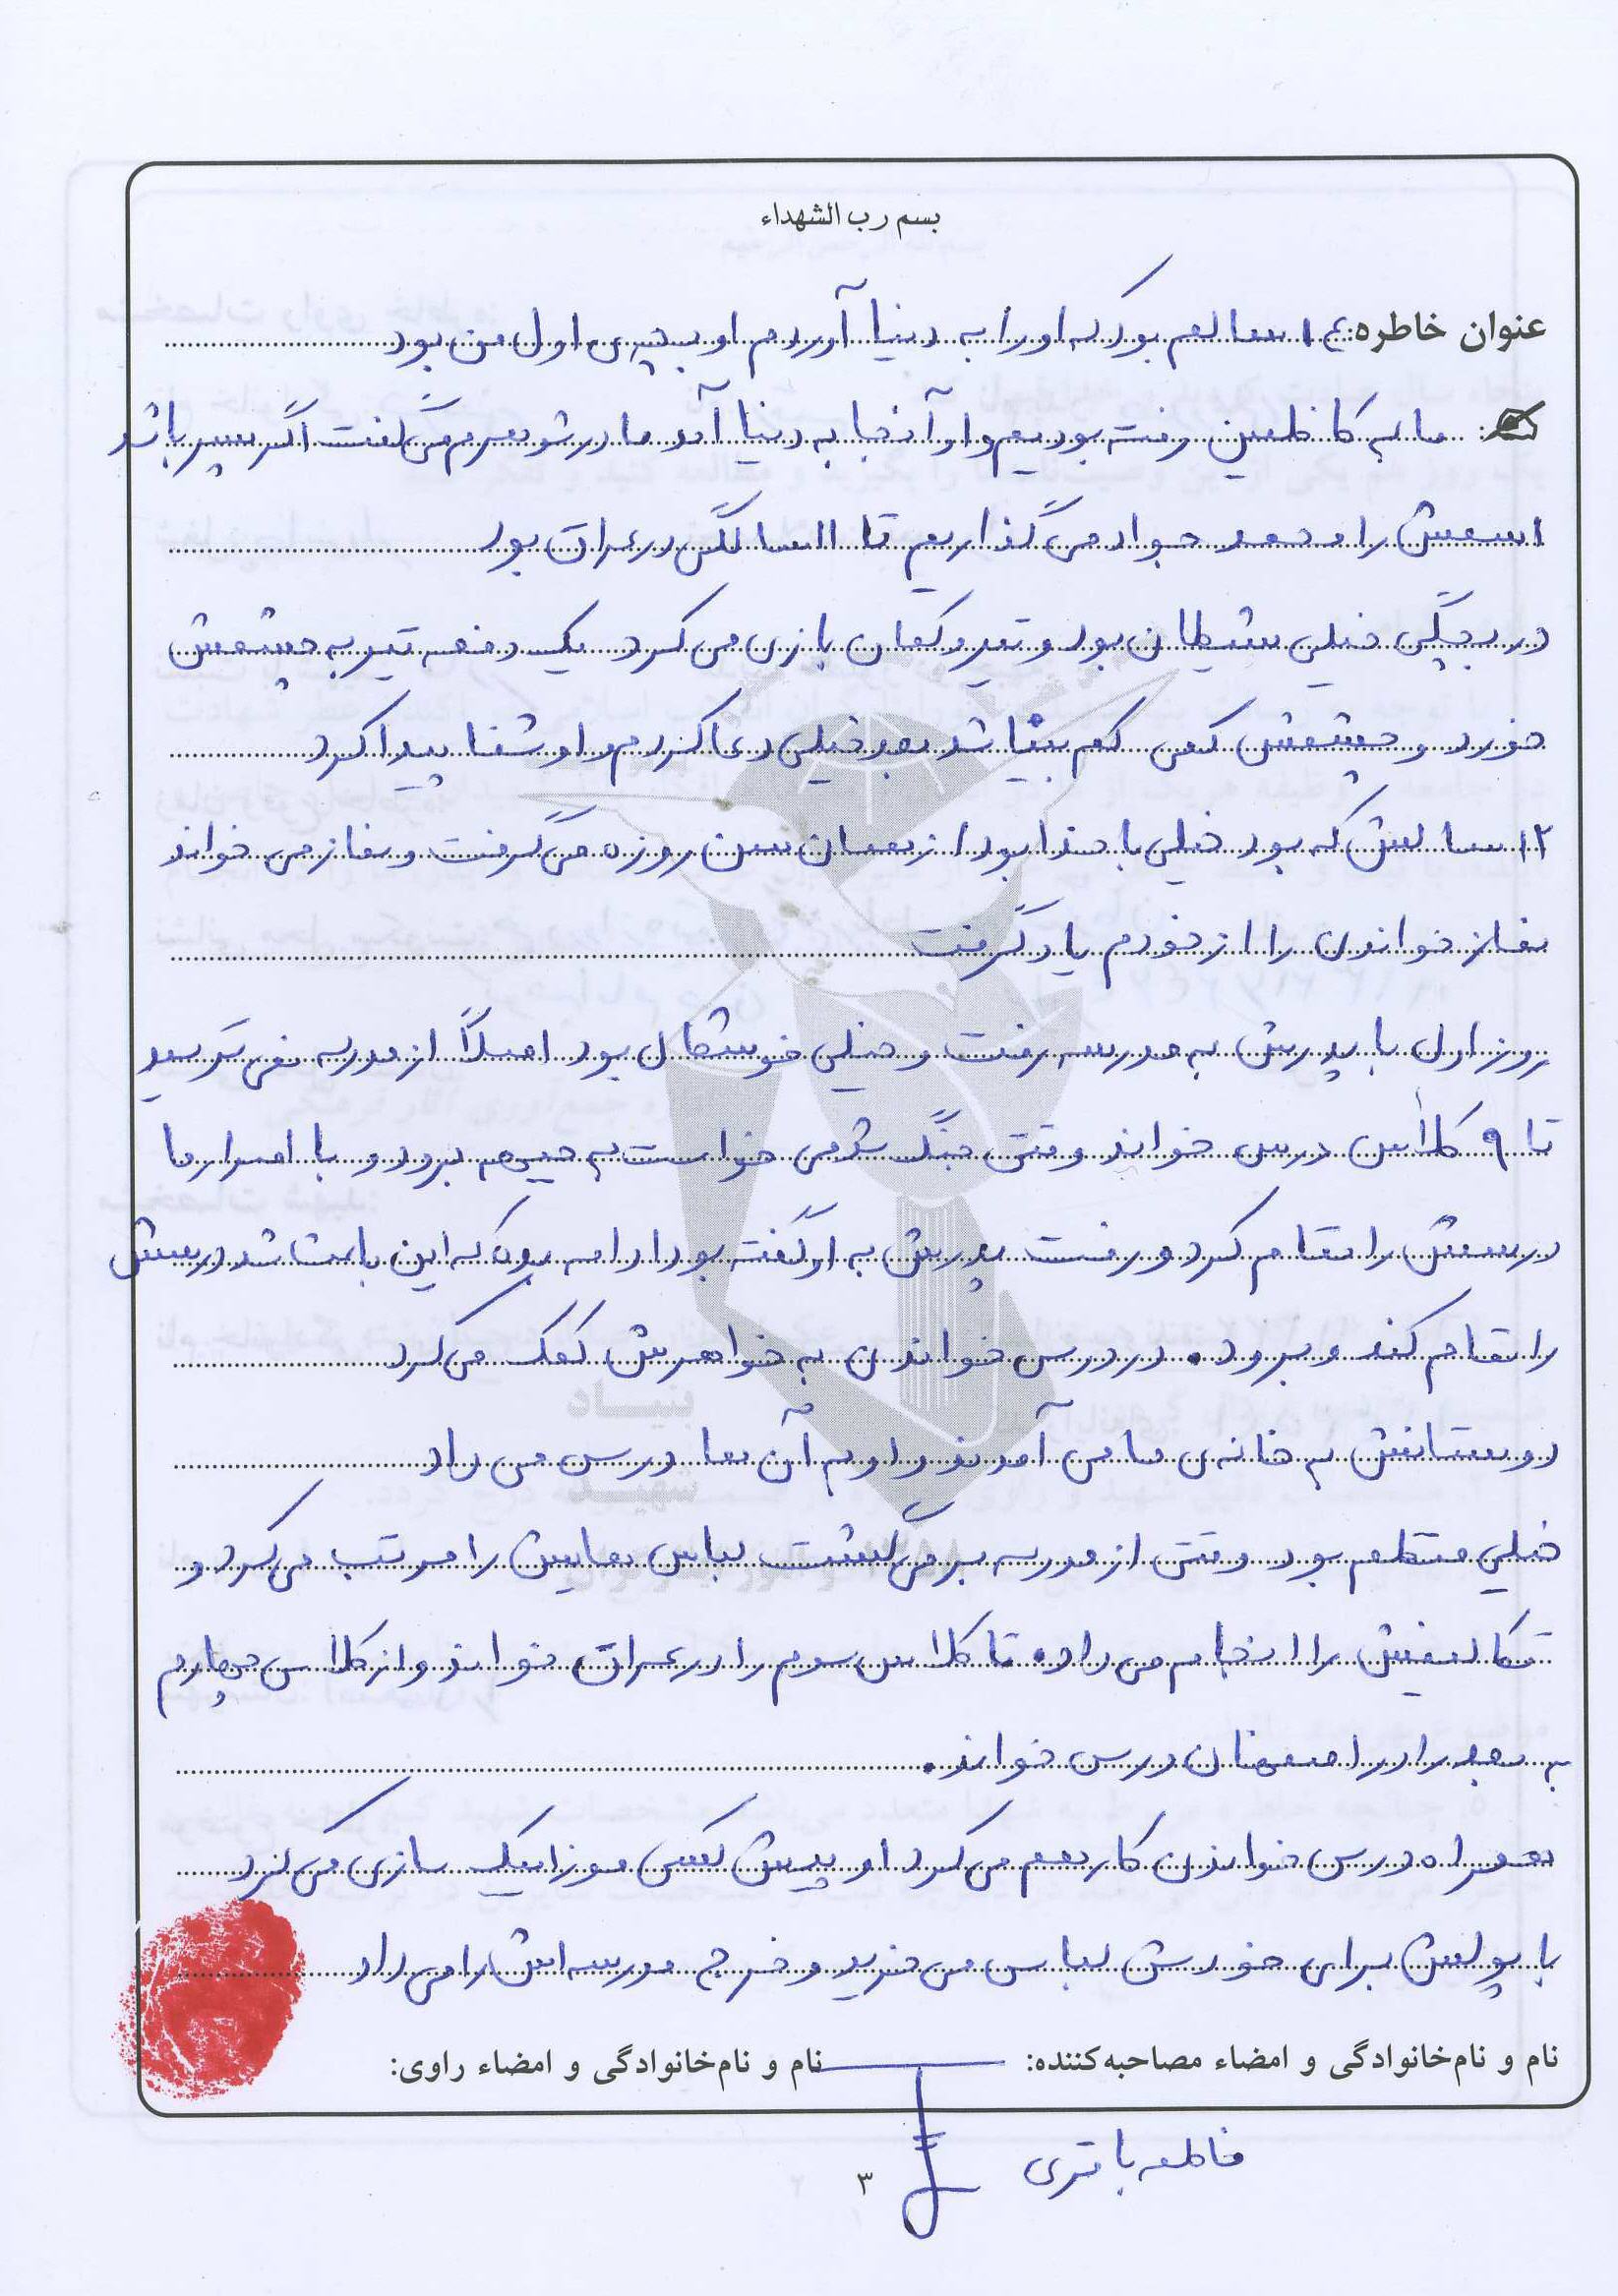 بسم رب الشهداء
عنوان خاطره: ۱۴ سالم بود که او را به دنیا آوردم او بچه‌ی اول من بود
ما به کاظمین رفته بودیم و او آنجا به دنیا آمد مادر شوهرم می‌گفت اگر پسر باشد
اسمش را محمد جواد می‌گذاریم تا ۱۱ سالگی در عراق بود
در بچگی خیلی شیطان بود و تیر و کمان بازی می‌کرد یک دفعه تیر به چشمش
خورد و چشمش کمی کم بینا شد بعد خیلی دعا کردم و او شفا پیدا کرد
۱۲ سالش که بود خیلی با خدا بود از همان سن روزه می‌گرفت و نماز می‌خواند
نماز خواندن را از خودم یاد گرفت
روز اول با پدرش به مدرسه رفت و خیلی خوشحال بود اصلاً از مدرسه نمی‌ترسید
تا ۹ کلاس درس خواند وقتی جنگ شد می‌خواست به جبهه برود و با اصرار ما
درسش را تمام کرد و رفت پدرش به او گفته بود ادامه بده که این باعث شد درسش
را تمام کند و برود. در درس خواندن به خواهرش کمک می‌کرد
دوستانش به خانه‌ی ما می‌آمدند و او به آن ها درس می‌داد
خیلی منظم بود وقتی از مدرسه برمی‌گشت لباس هایش را مرتب می‌کرد و
تکالیفش را انجام می‌داد تا کلاس سوم را در عراق خواند و از کلاس چهارم
به بعد را در اصفهان درس خواند.
همراه درس خواندن کار هم می‌کرد او پیش کسی موزاییک سازی می‌کرد
با پولش برای خودش لباس می‌خرید و خرج مدرسه اش را می‌داد
نام و نام‌خانوادگی و امضاء مصاحبه‌کننده: نام و نام‌خانوادگی و امضاء راوی:
فاطمه باقری
۳